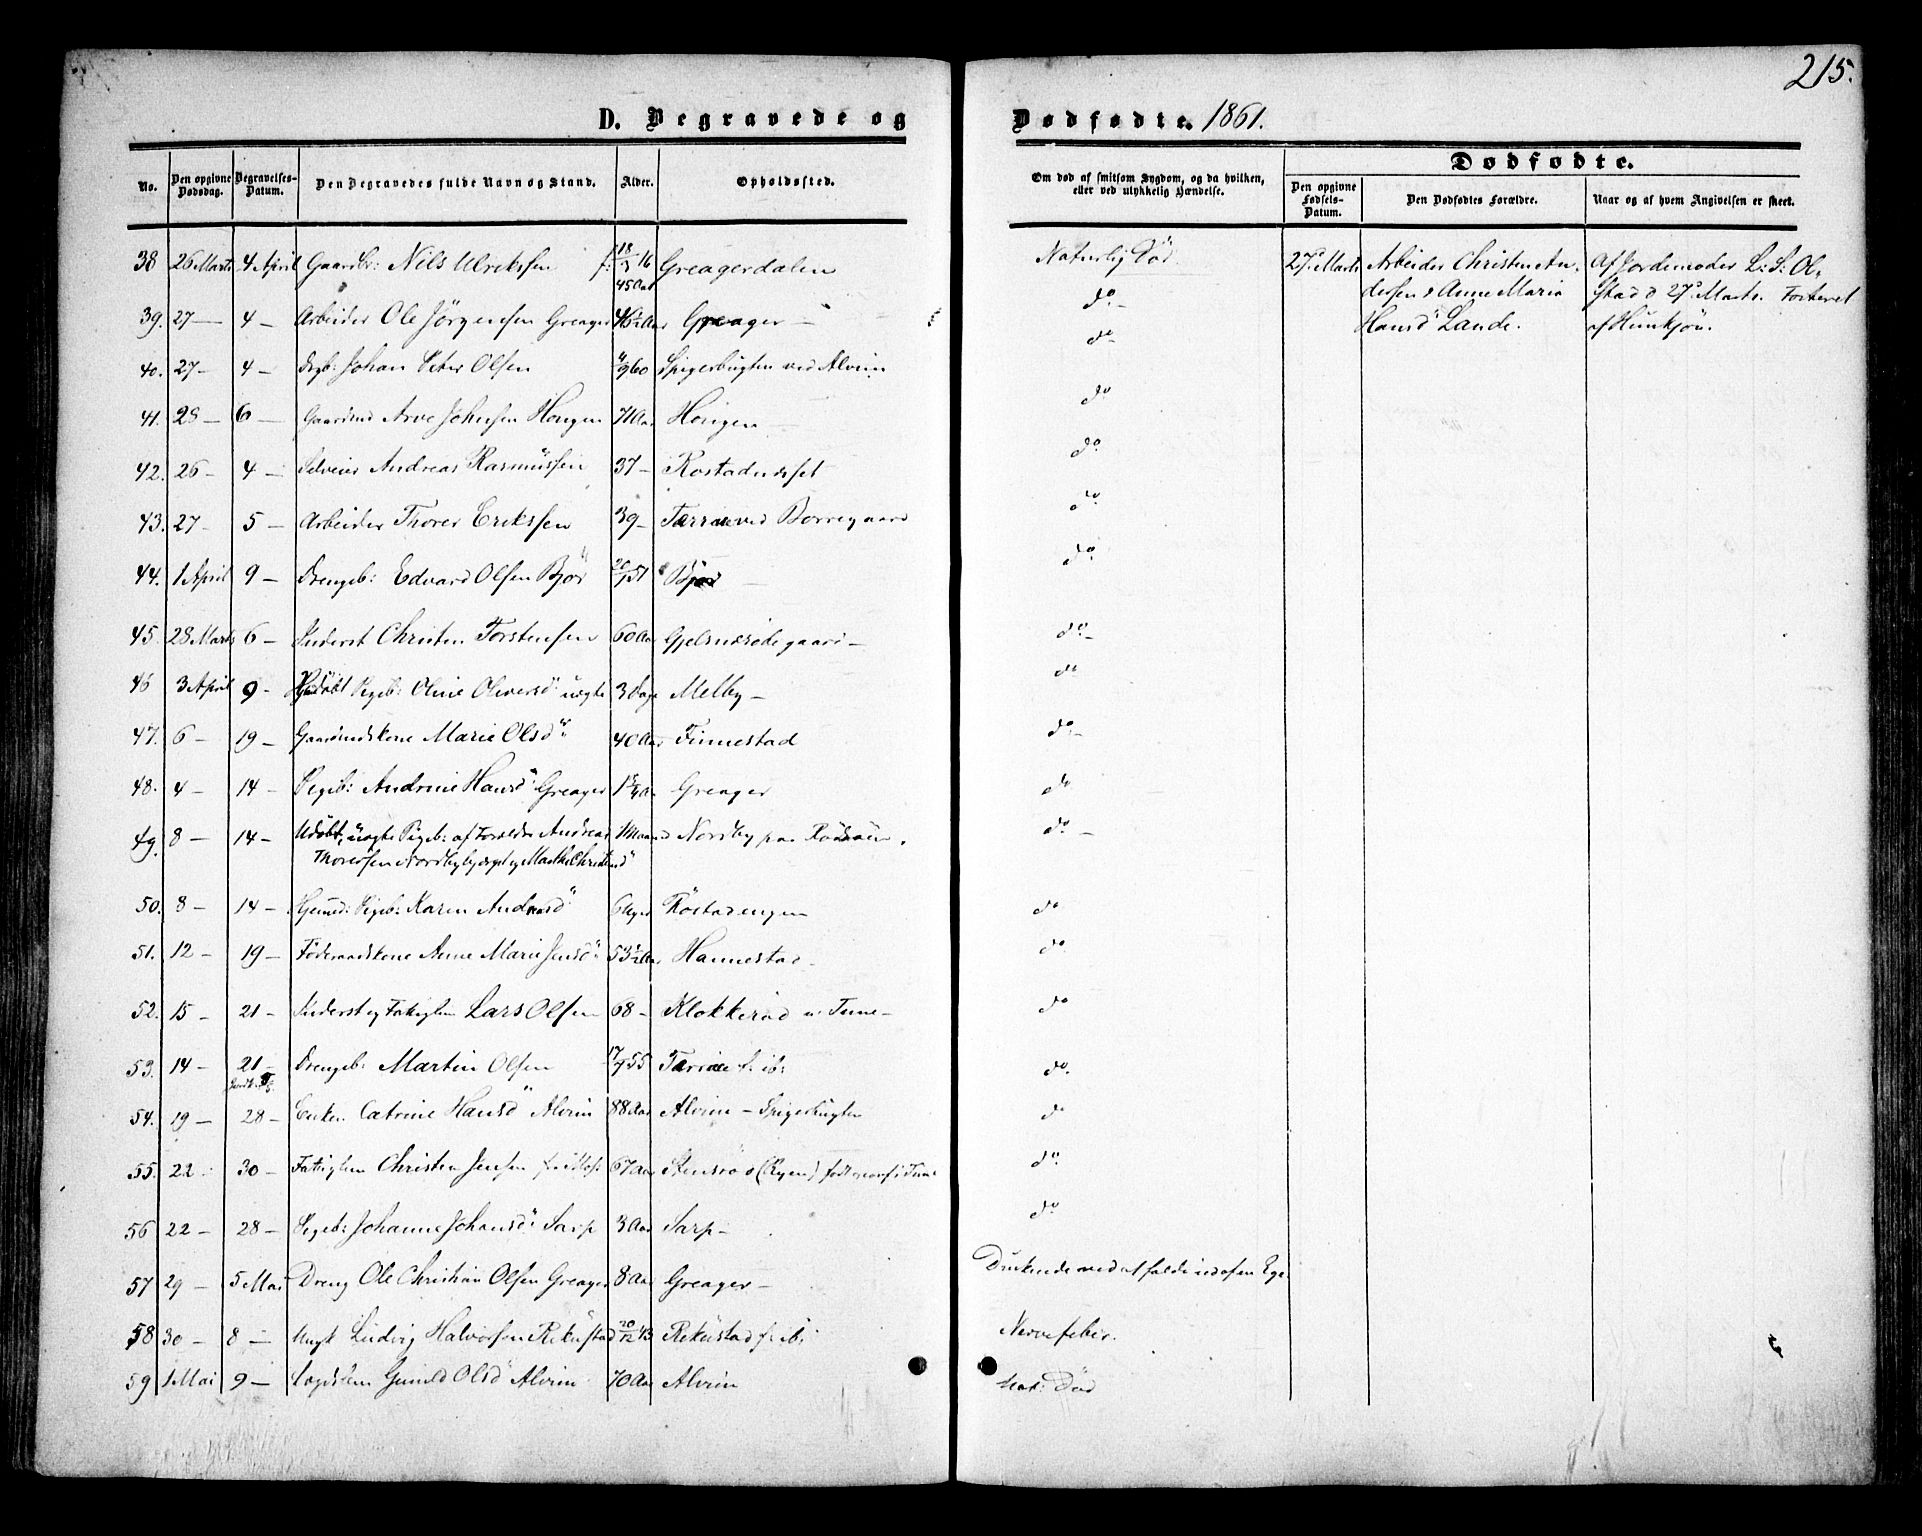 215.
D. Begravede og Dødfødte. 1861.
Dødfødte.
No.
Den opgivne Dødsdag.
Begravelses-Datum.
Den Begravedes fulde Navn og Stand.
Alder.
Opholdssted.
Om død af smitsom Sygdom, og da hvilken, eller ved ulykkelig Hændelse.
Den opgivne Fødsels-Datum.
Den Dødfødtes Forældre.
Naar og af hvem Angivelsen er skeet.
38 26 Marts 4 April Gaardbr: Nils Ulriksen f. 18/3 16 45 Aar Greagerdalen Naturlig Död
27de Marts Arbeider Christen An-
dersen & Anne Maria
Hansdr Lande.
Af Jordemoder L: S: Ol-
stad d 27de Marts.
39. 27 — 4 — Arbeider Ole Jörgensen Greager 46½ Aar Greager — do —
40. 27 — 4 — Drgb: Johan Peter Olsen 4/9 60 Spigerbugten ved Alvim do
41. 28 — 6 — Gaardmd Arve Johnsen Hougen 71 Aar Hougen do
42. 26 — 4 — Selveier Andreas Rasmüssen 37 — do
43. 27 — 5 — Arbeider Thorer Eriksen 39 — ved Borregaard do
44. 1 April 9 — Drengeb: Edvard Olsen Björ Björ do
45. 28 Marts 6 — Inderst Christen Torstensen 60 Aar do —
46 3 April 9 — Pigeb: Oline Oliversdr uægte 3 Dage Melby — do
47. 6 — 19 — Gaardmdskone Marie Olsdr 40 Aar Finnestad do —
48. 4 — 14 — Pigeb: Andrine Hansdr Greager Greager do
49. 8 — 14 — Udöbt, uægte Pigeb: af Forældre Andreas
Thoresen Nordbybjerget og Marthe 1 Maaned Nordby paa do —
50. 8 — 14 — Hjemd: Pigeb: Karen 6 Uger Röstadengen do
51. 12 — 19 — Föderaadskone Anne Marie Jensdr 53½ Aar Hannestad — do
52. 15 — 21 — Inderst og Fattiglem Lars Olsen 68 — Klokkeröd Tune — do
53. 14 — 21 — Drengeb: Martin Olsen do.
54. 19 — 28 — Enken Catrine Hansdr Alvim 88 Aar Alvim — Spigerbugten do
55. 22 30 — Fattiglem Christen Jensen 67 Aar Stensröd (Rygen) do
56 22 — 28 — Pigeb: Johanne Johansdr Sarp 3 Aar Sarp — do
57 29 — 5 Mai Dreng Ole Christian Olsen Greager 8 Aar Greager — Druknede ved at falde
58 30 — 8 — Ungk Ludvig Halvorsen Rekustad 20/12 43 Rekustad f: ib: Nervefeber.
59 1 Mai 9 — Lægdslem Gunild Olsdr Alvim 70 Aar Alvim Nat: Död